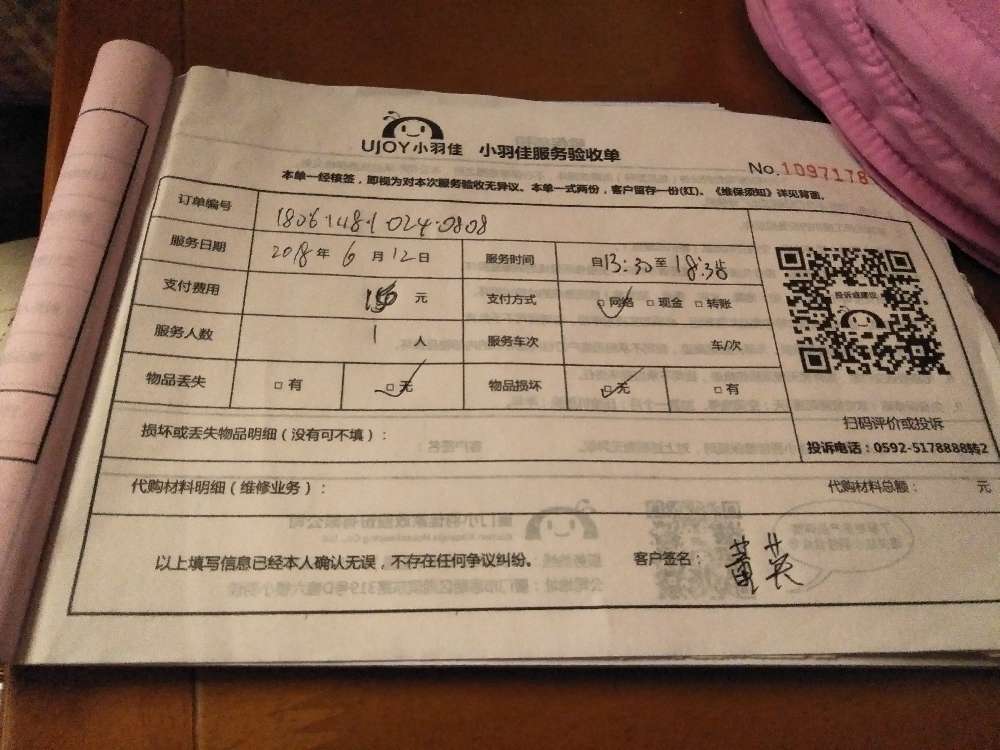 UJOY小羽佳 小羽佳服务验收单
No.1097178
本单一经核签，即视为对本次服务验收无异议。本单一式两份，客户留存一份(红)。《维保须知》详见背面。
订单编号
服务日期 2018年6月12日 服务时间 自13:30至18:35
支付费用 元 支付方式 □网络 □现金 □转账
服务人数 1人 服务车次 车/次
物品丢失 □有 □无 物品损坏 □无 □有
投诉或建议
扫码评价或投诉
投诉电话：0592-5178888转2
损坏或丢失物品明细（没有可不填）：
代购材料明细（维修业务）： 代购材料总额： 元
以上填写信息已经本人确认无误，不存在任何争议纠纷。 客户签名：